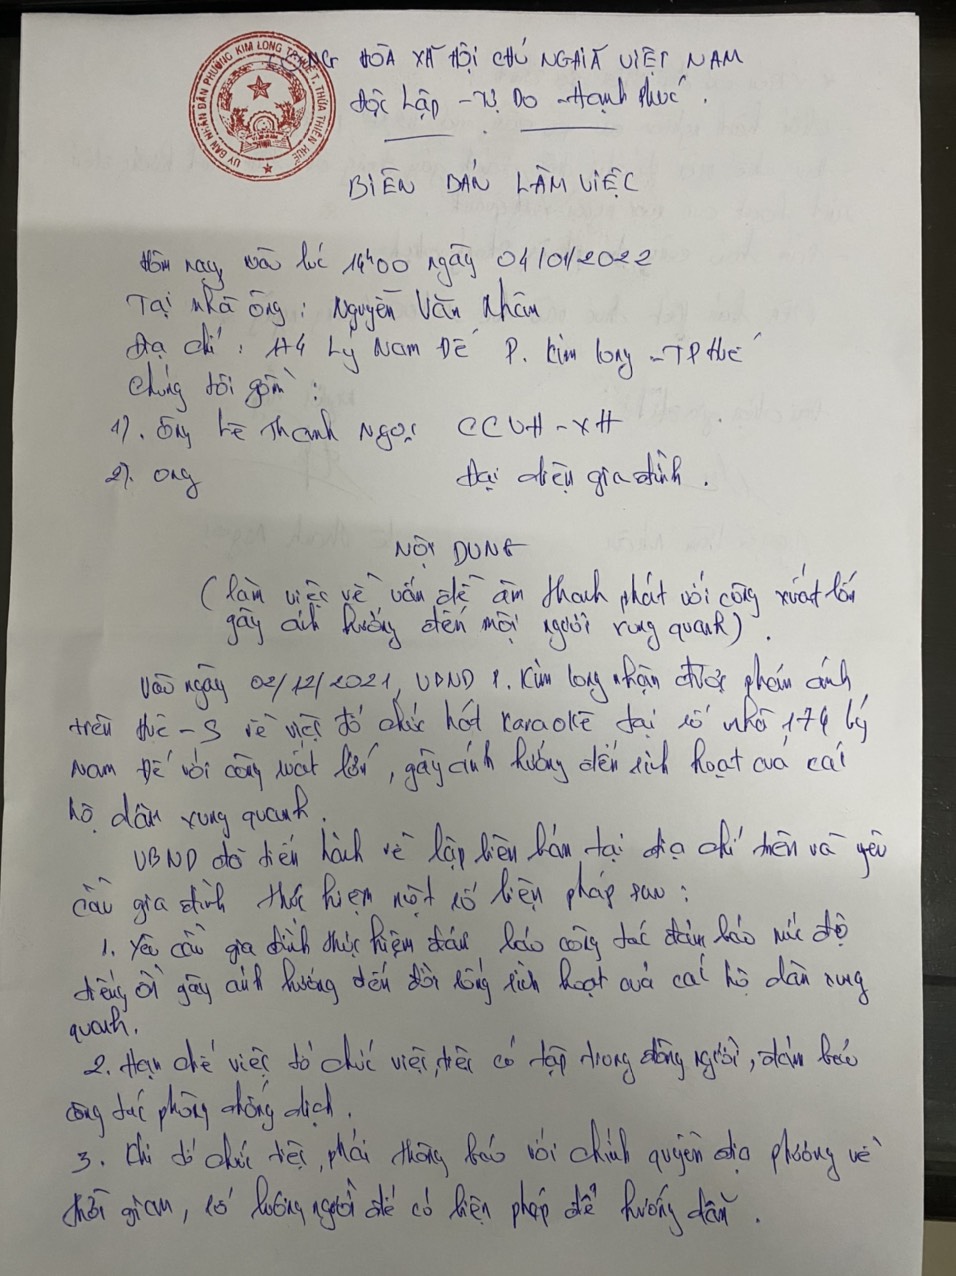 CỘNG HÒA XÃ HỘI CHỦ NGHĨA VIỆT NAM
Độc lập - Tự Do - Hạnh phúc.
ỦY BAN NHÂN DÂN PHƯỜNG KIM LONG T.P HUẾ T. THỪA THIÊN HUẾ
BIÊN BẢN LÀM VIỆC
Hôm nay, vào lúc 14h00 ngày 04/01/2022
Tại nhà ông: Nguyễn Văn Nhân
Địa chỉ: 174 Lý Nam Đế P. Kim Long - TP Huế
Chúng tôi gồm:
1). Ông Lê Thanh Ngọc CCVH-XH
2). Ông Đại diện gia đình.
NỘI DUNG
(làm việc về vấn đề âm thanh phát với công xuất lớn
gây ảnh hưởng đến mọi người xung quanh).
Vào ngày 02/12/2021, UBND P. Kim Long nhận được phản ánh
trên Huế-S về việc tổ chức hát karaoke tại số nhà 174 Lý
Nam Đế với công suất lớn, gây ảnh hưởng đến sinh hoạt của các
hộ dân xung quanh.
UBND đã tiến hành về lập biên bản tại địa chỉ trên và yêu
cầu gia đình thực hiện một số biện pháp sau:
1. Yêu cầu gia đình thực hiện đảm bảo công tác đảm bảo mức độ
tiếng ồn gây ảnh hưởng đến đời sống sinh hoạt của các hộ dân xung
quanh.
2. Hạn chế việc tổ chức việc, tiệc có tập trung đông người, đảm bảo
công tác phòng chống dịch.
3. Khi tổ chức tiệc, phải thông báo với chính quyền địa phương về
thời gian, số lượng người để có biện pháp để hướng dẫn.